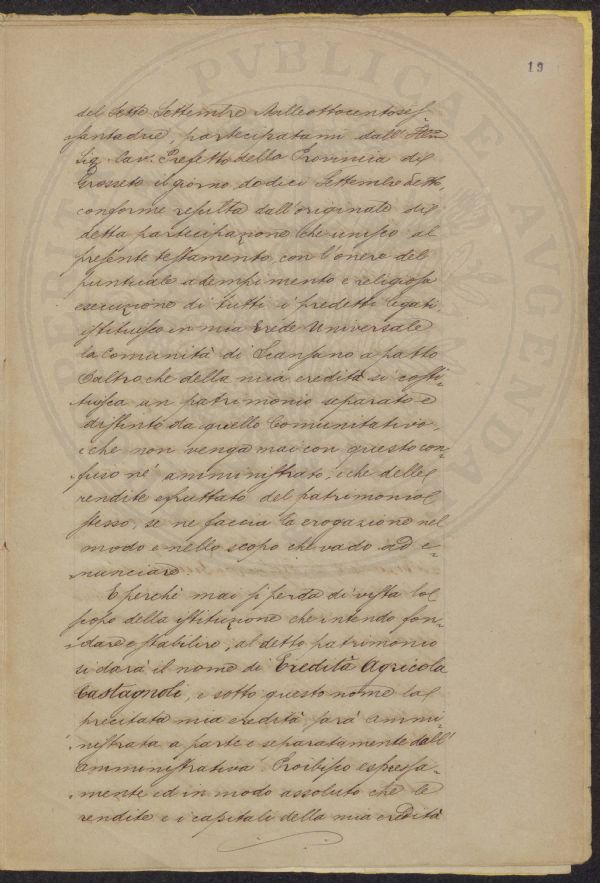 19
del Sette Settembre Milleottocentoses
santadue, partecipatami dall'
Sig. Cav. Prefetto della Provincia di
Grosseto il giorno dodici Settembre detto,
conforme resulta dall'originale di
detta partecipazione che unisco al
presente testamento, con l'onere del
puntuale adempimento e religiosa
esecuzione di tutti i predetti legati,
istituisco in mia Erede Universale
la Comunità di Scansano a patto
 altro che della mia eredità si costi-
tuisca un patrimonio separato e
distinto da quello Comunitativo,
e che non venga mai con questo con-
fuso nè amministrato, e che delle
rendite e fruttato del patrimonio
stesso, se ne faccia la erogazione nel
modo e nello scopo che vado ad e-
nunciare
E perchè mai si perda di vista lo
scopo della istituzione che intendo fon-
dare e stabilire, al detto patrimonio
si darà il nome di Eredità Agricola
Castagnoli, e sotto questo nome la
precitata mia eredità sarà ammi-
nistrata a parte e separatamente dall'
Amministrativa. Proibisco espressa-
mente ed in modo assoluto che le
rendite e i capitali della mia eredità